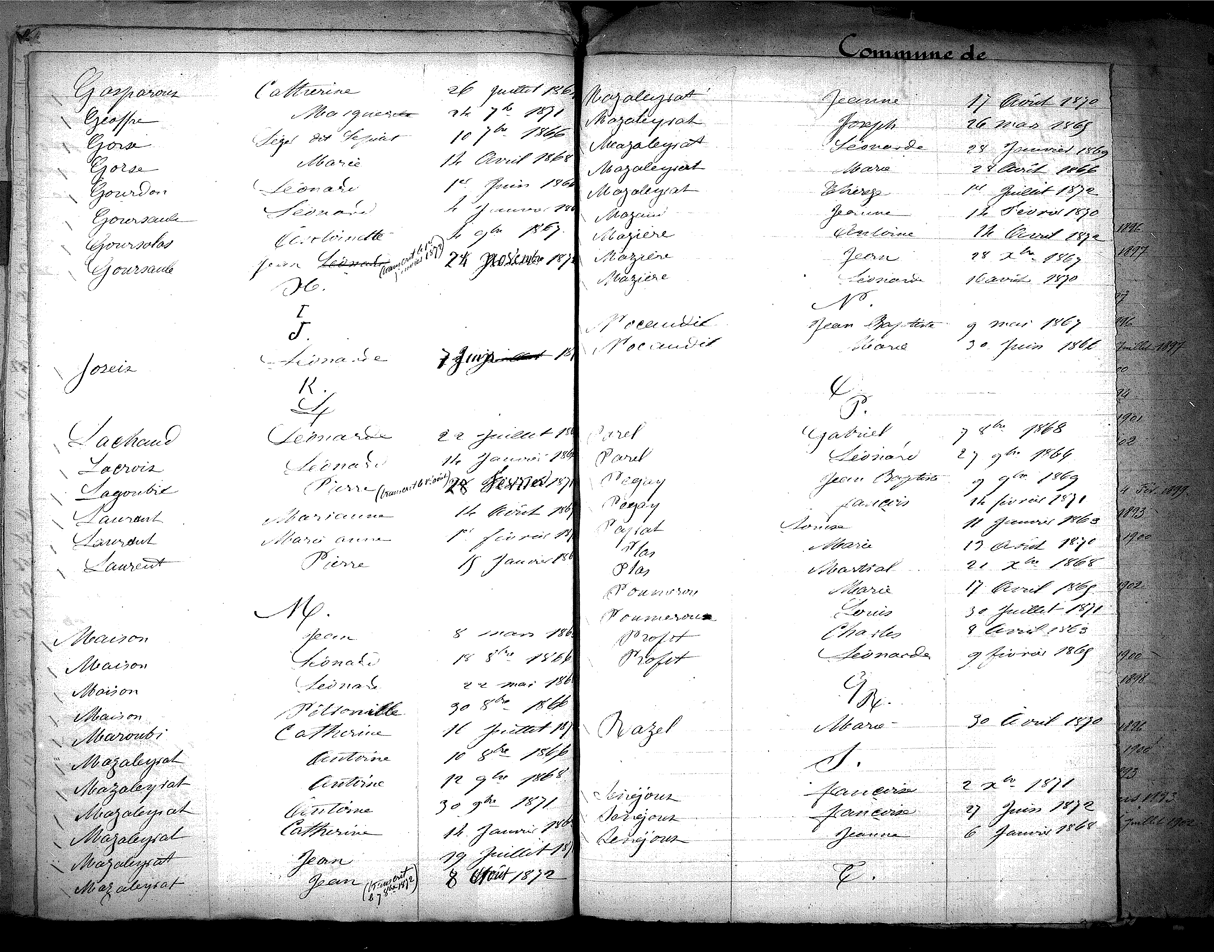 Commune de
Gasparoux Catherine 26 juillet 186
Geoffre Marguerite 24 7bre 1871
Gorse 10 7bre 1866
Gorse Marie 14 Avril 1868
Gourdon Léonard 1er Juin 186
Goursaule Léonard 4 Janvier 186
Goursolas Antoinette 4 9bre 1867
Goursaule Jean Léonard 24 novembre 187
H.
I
J.
Joseix Léonarde 7 Juin 187
K.
L
Lachaud Léonarde 22 Juillet 186
Lacroix Léonard 14 Janvier 186
Lagoubie Pierre 28 février 1871
Laurent Marianne 14 Août 186
Laurent Marianne 1er février 187
Laurent Pierre 15 Janvier 186
M.
Maison Jean 8 mars 186
Maison Léonard 18 8bre 1866
Maison Léonard 22 mai 186
Maison 30 8bre 1866
Maroubi Catherine 16 Juillet 187
Mazaleyrat Antoine 10 8bre 1866
Mazaleyrat Antoine 12 9bre 1868
Mazaleyrat Antoine 30 9bre 1871
Mazaleyrat Catherine 14 Janvier 186
Mazaleyrat Jean 19 Juillet 187
Mazaleyrat Jean (transcrit le 7 8bre 1872) 8 Août 1872
Mazaleyrat Jeanne 17 Août 1870
Mazaleyrat Joseph 26 mars 1865
Mazaleyrat Léonarde 28 Janvier 1869
Mazaleyrat Marie 28 Août 1866
Mazaleyrat Thérèze 1er Juillet 1872
Mazaud Jeanne 14 Février 1870
Mazière Antoine 14 Avril 1872
Mazière Jean 28 Xbre 1867
Mazière Léonarde 16 avril 1870
N.
Nocaudit Jean Baptiste 9 mai 1867
Nocaudit Marie 30 Juin 1866
O
P.
Parel Gabriel 7 8bre 1868
Parel Léonard 27 9bre 1866
Pegay Jean Baptiste 9 9bre 1869
Pegay françois 14 février 1871
Peyrat Louise 11 Janvier 1863
Plas Marie 13 Août 1870
Plas Martial 21 Xbre 1868
Poumeron Marie 17 Avril 1865
Poumeroux Louis 30 Juillet 1871
Profot Charles 8 Avril 1863
Profot Léonarde 9 février 1865
Q
R.
Razel Marie 30 Avril 1870
S.
Senéjoux françoise 2 Xbre 1871
Senéjoux françoise 27 Juin 1872
Senéjoux Jeanne 6 Janvier 1868
T.
1896
1897
Juillet 1897
1901
4 Fév. 1899
1893
1900
1902
1900
1898
1896
1900
Juillet 1902